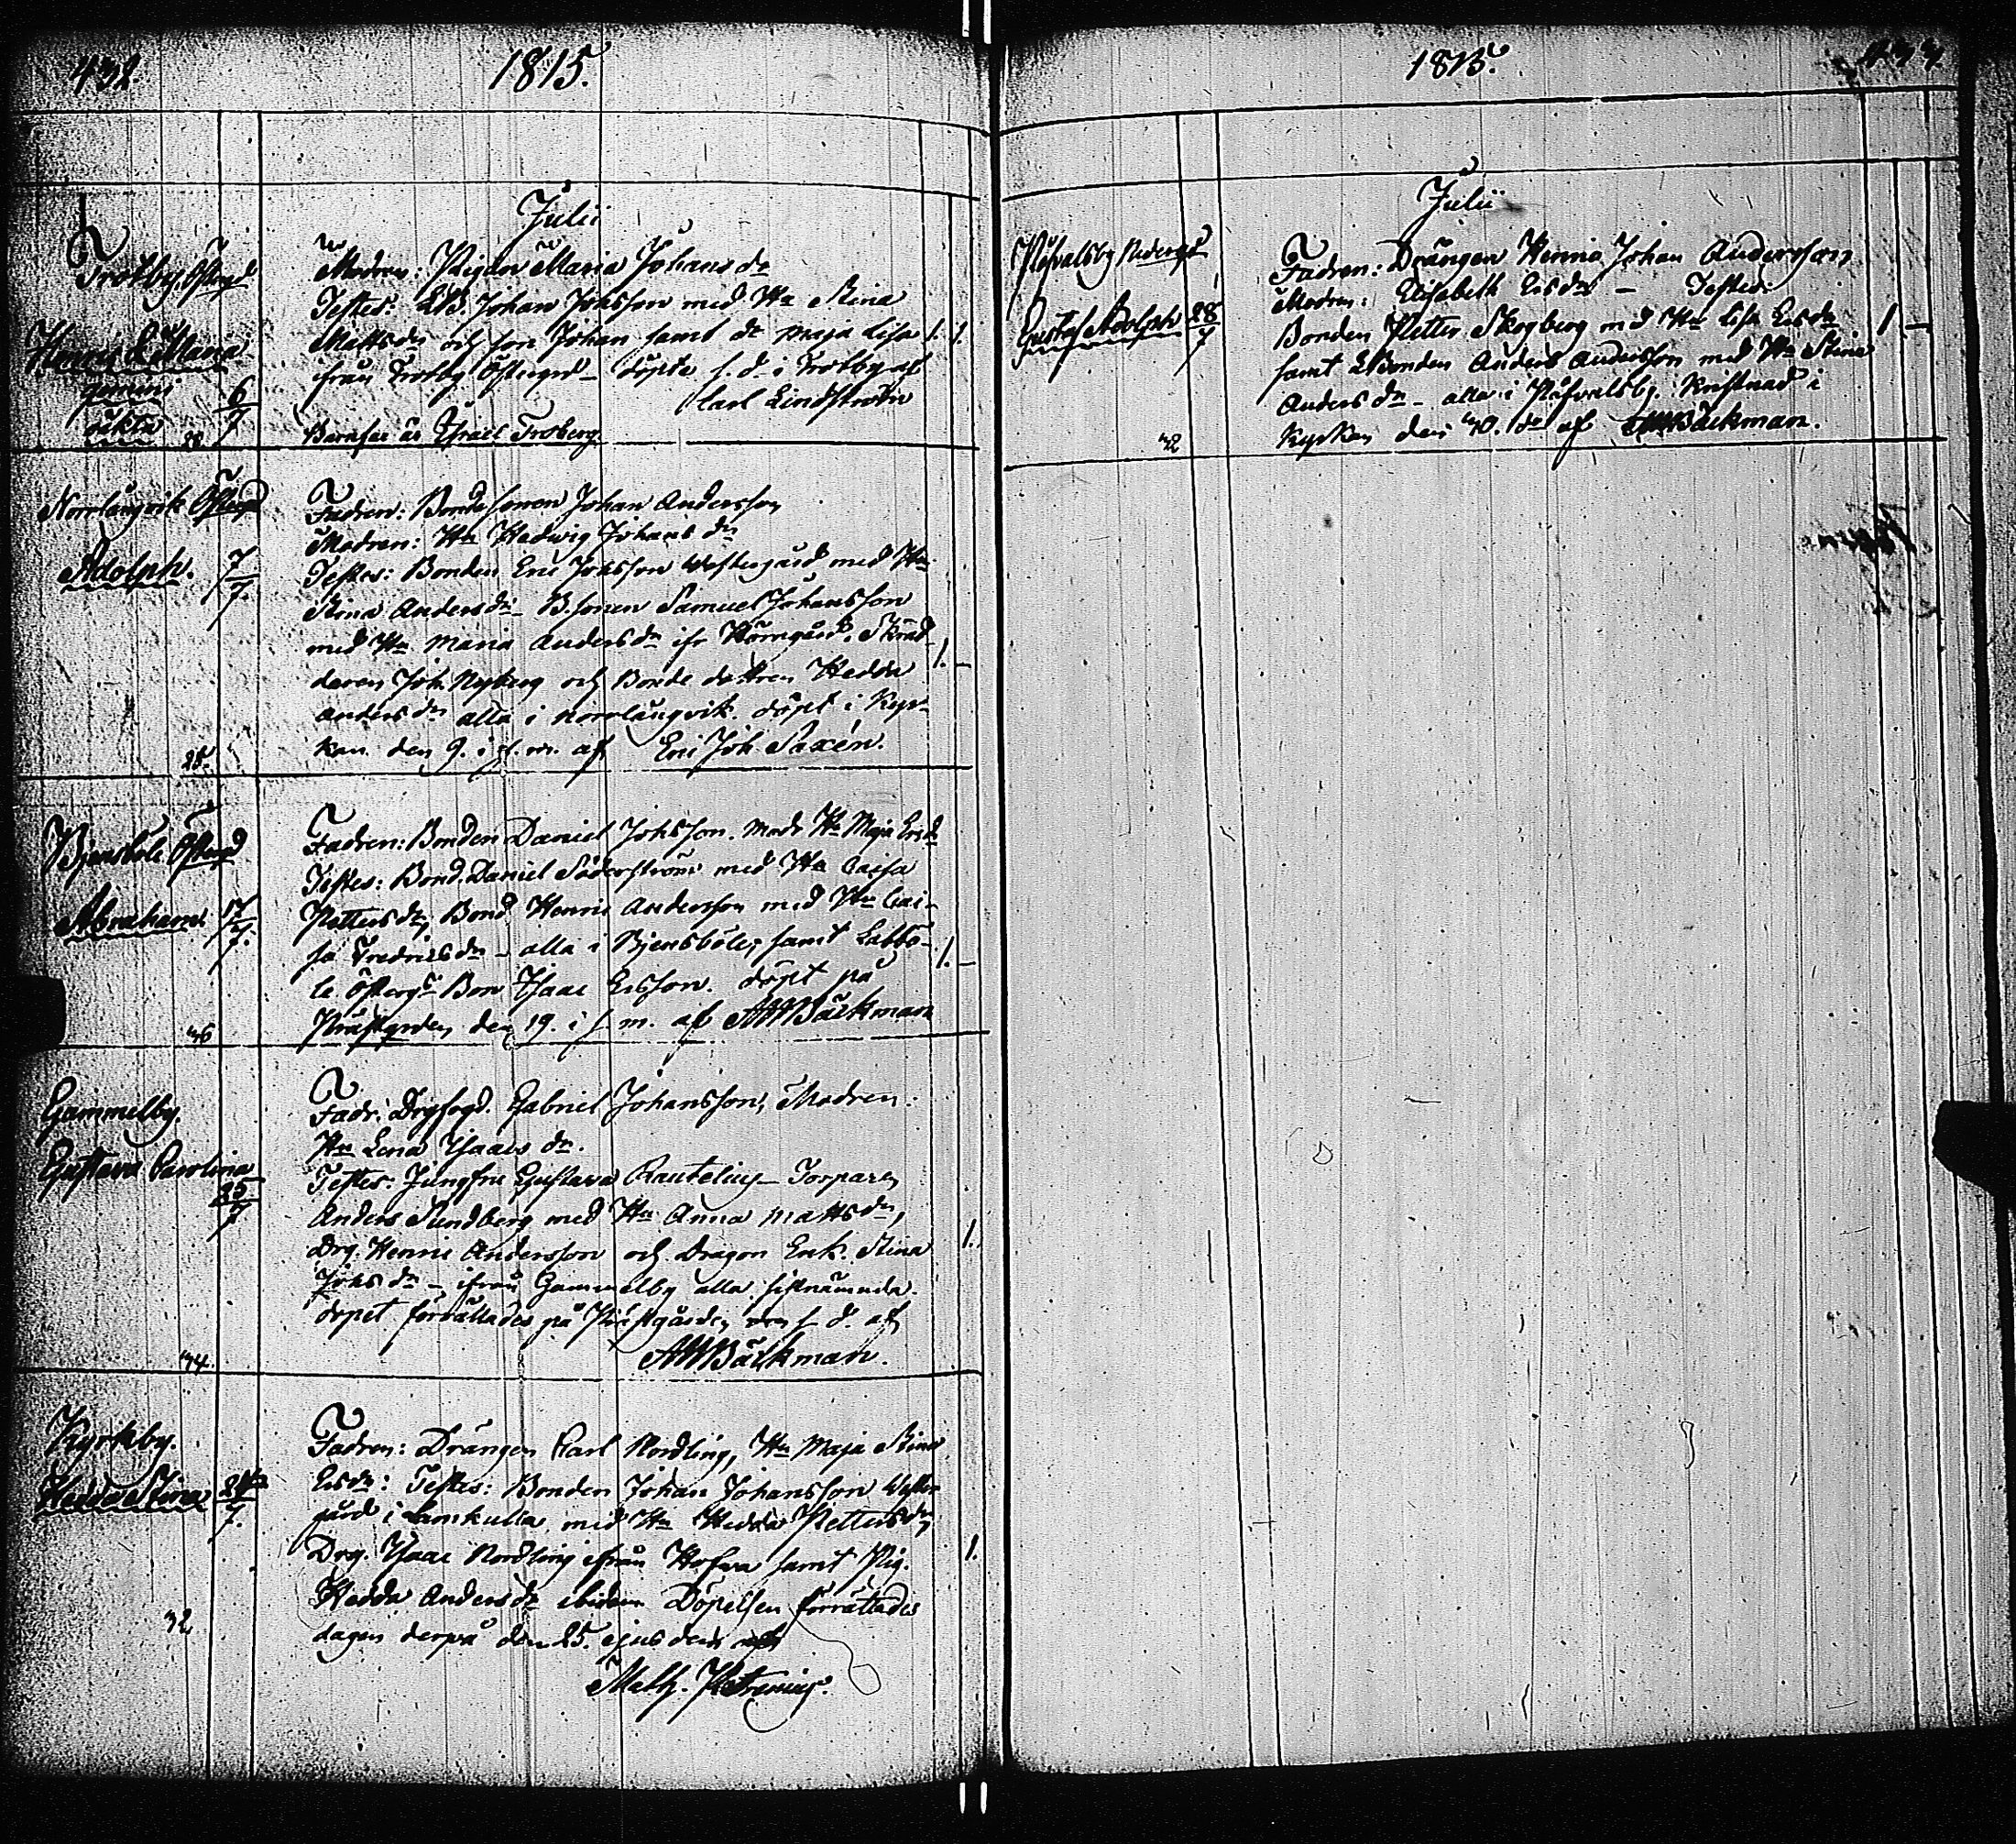 432
1815.
Julii
Trotby Österg.d
Henric & Maria
gemini
oäkta
6/7
28
Modren: Pigan Maria Johans dr
Testes: LB. Johan Johsson med Hu Stina
Matts dr och son Johan samt dr Maja Lisa
ifrån Trotby Östergrd – döpte s. d. i Trotby af
Carl Lindström
Barnfar är Israel Troberg
1. 1.
Norrlångvik Österg.d
Adolph.
7/7.
25.
Fadren: Bondesonen Johan Andersson
Modren: Hu Hedwig Johans dr
Testes: Bonden Eric Johsson Westergård med Hu
Stina Anders dr – B.sonen Samuel Johansson
med Hu Maria Anders dr ifr Horngård. Skräd-
daren Joh. Nyberg och Bonde dottren Hedda
Anders dr alla i Norrlångvik. döpt i Kyr-
kan den 9. i s. m. af Eric Joh Saxén.
1. –
Bjensböle Österg.d
Abraham.
17/7.
36
Fadren: Bonden Daniel Johsson. Modr Hu Maja Ersdr
Testes: Bond. Daniel Söderström med Hu Caisa
Petters dr, Bond Henric Andersson med Hu Cai-
sa Fredrics dr – alla i Bjensböle, samt Labbö-
le Österg.d Bon Isaac Ersson. döpt på
Prästgrden den 19. i s. m. af AWBäckman
1. –
Gammelby.
Gustava Carolina
25/7
34.
Fadr. Drgfogd. Gabriel Johansson, Modren:
Hu Lena Isaacs dr.
Testes: Jungfru Gustava Rautelius – Torparen
Anders Sundberg med Hu Anna Matts dr,
Drg. Henric Andersson och Dragon Enk. Stina
Johs dr – ifrån Gammelby alla sistnämnda.
dopet förrättades på Prästgården s. d. af
AWBäckman.
1.
Kyrkby.
Hedda Stina
24/7.
32
Fadren: Drängen Carl Nordling, Hu Maja Stina
Ersdr: Testes: Bonden Johan Johansson Wester-
gård i Lamkulla med Hu Hedda Petters dr,
Drg. Isaac Nordling ifrån Hofva samt Pig.
Hedda Anders dr ibidem Döpelsen förrättades
dagen derpå den 25. ejusdem af
Math. Petrenius.
1.
1815.
433
Julii
Påfvalsby Nedergrd
Gustaf Adolph
28/7
32
Fadren: Drängen Henric Johan Andersson
Modren: Elisabeth Ersdr – Testes:
Bonden Petter Skogberg med Hu Lisa Ersdr
samt LBonden Anders Andersson med Hu Stina
Anders dr – alla i Påfvalsby. Kristnad i
Kyrkan den 30. dr af AWBäckman.
1 –